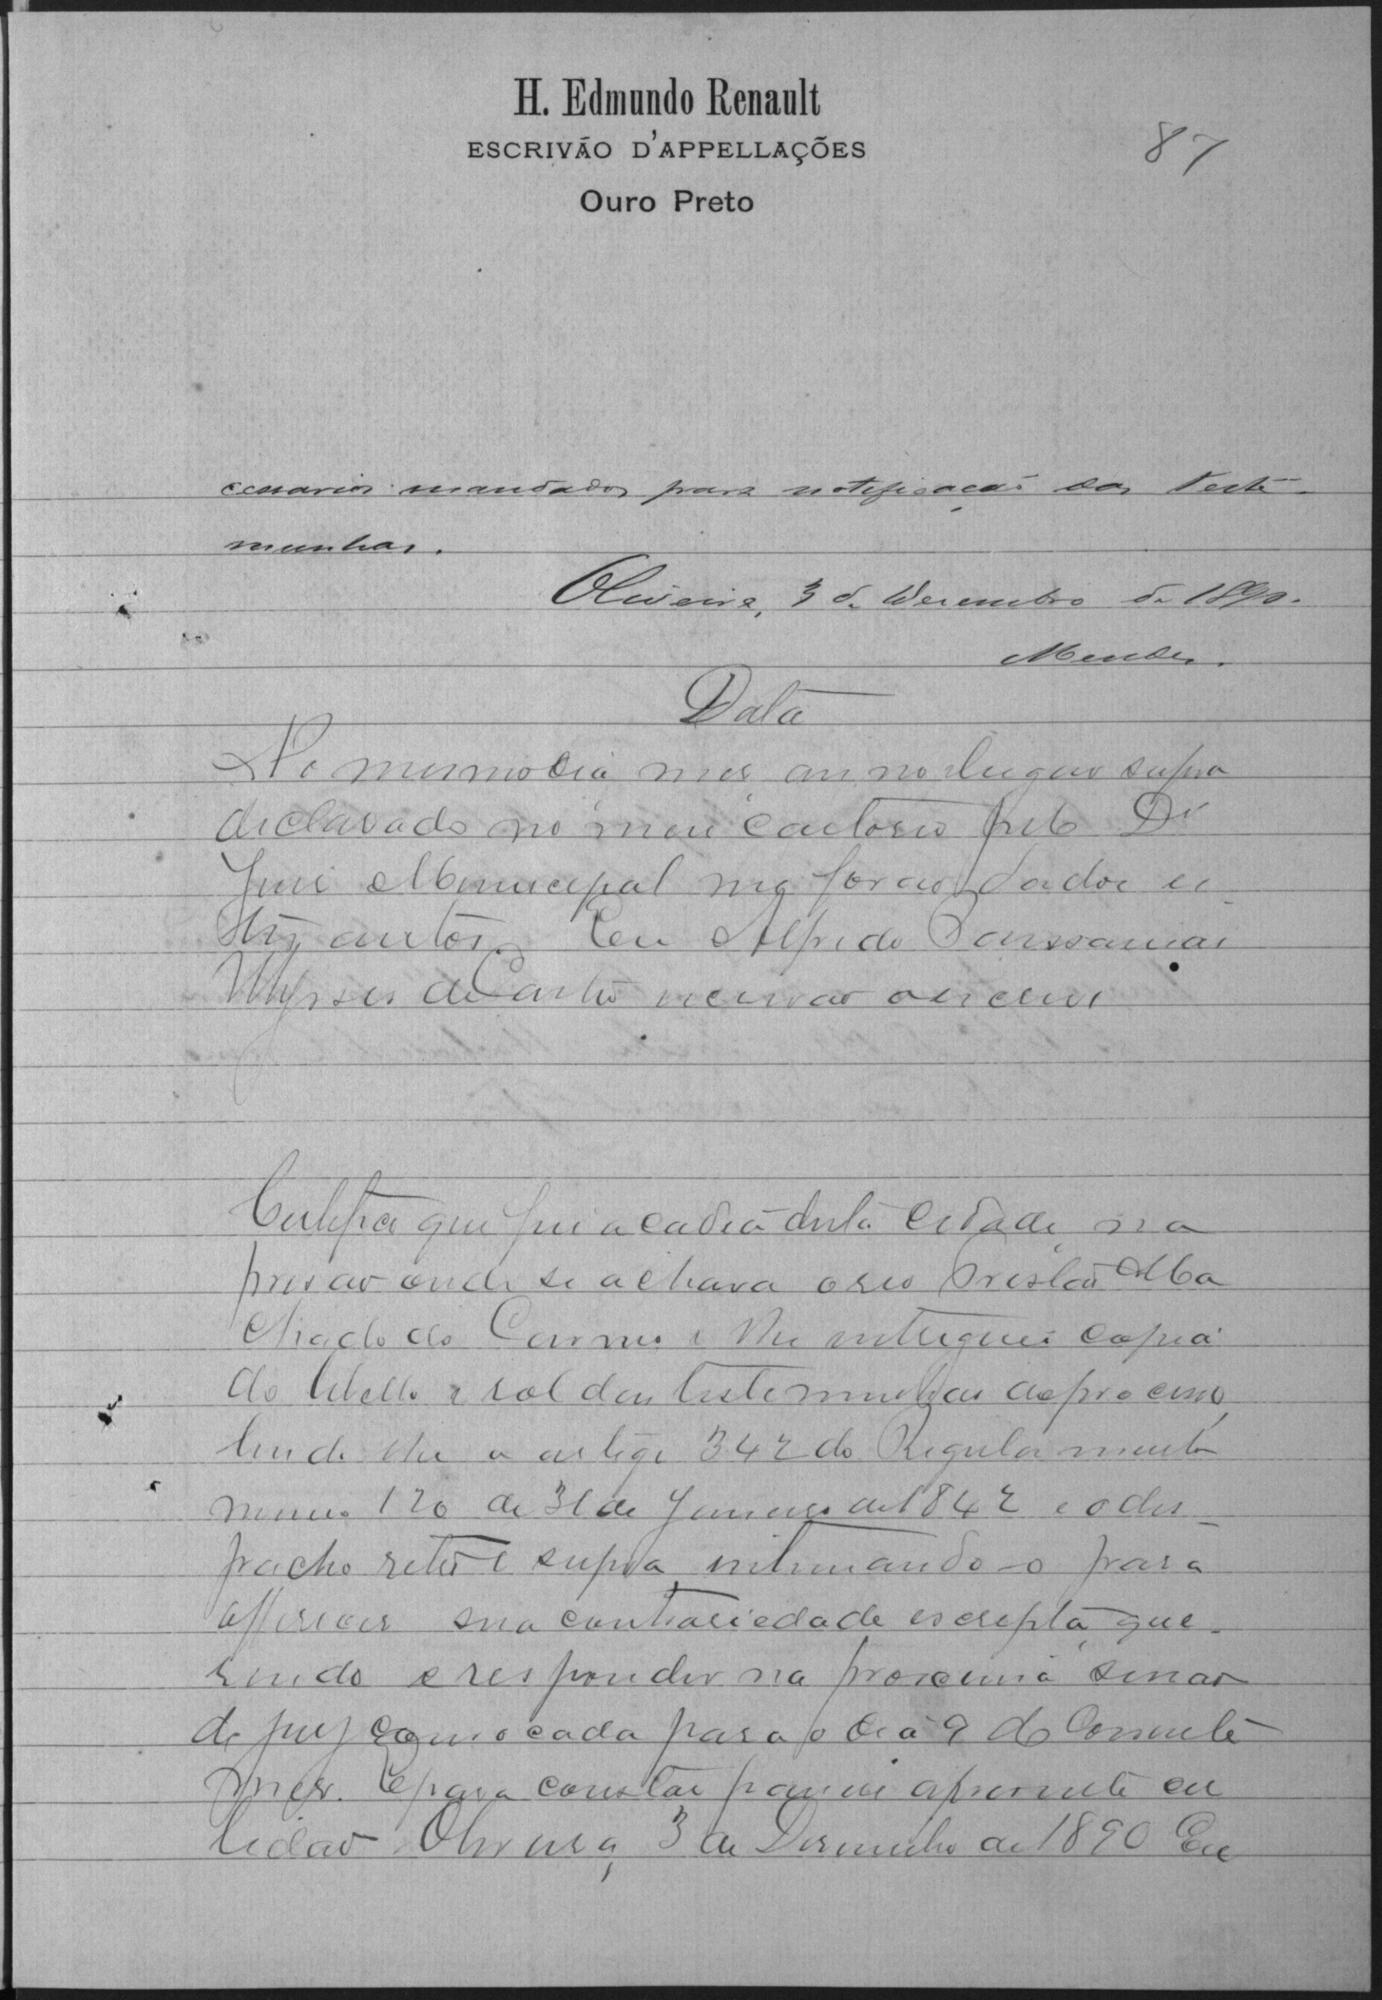 H. Edmundo Renault
ESCRIVÃO D'APPELLAÇÕES
Ouro Preto
87
cessarios mandados para notificação das teste-
munhas.
Oliveira, 3 de Dezembro de 1890.
Mendes.
Data
No mesmo dia mez anno lugar supra
declarado no meu cartorio pelo Dr
Juiz Municipal me forão dados es-
tes autos. Eu Alfredo
Ulysses de Castro escrivão o escrevi
Certifico que fui a cadeia desta cidade, na
prisão onde se achava o reo Tristão Ma
chado do Carmo e lhe entreguei copia
do libello e rol das testemunhas do processo,
lendo lhe o artigo 342 do Regulamento
numero 120 de 31 de Janeiro de 1842 e o des-
pacho retro e supra, intimando-o para
offerecer sua contrariedade escripta, que-
rendo e responder na proxima sessão
de jury convocada para o dia 9 do corrente
mez. E para constar passei a presente cer
tidão Oliveira, 3 de Dezembro de 1890 Eu